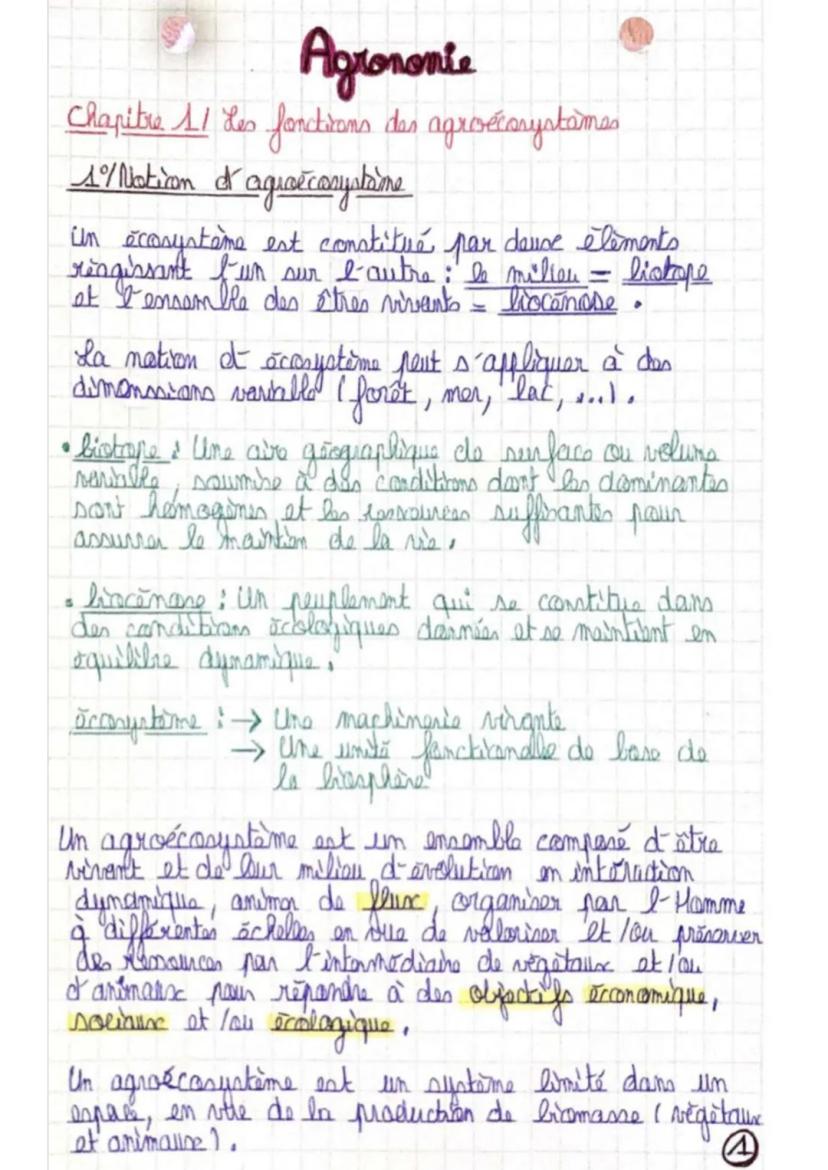 Agronomie
Chapitre 1/ Les fonctions des agroécosystèmes
1°/ Notion d'agroécosystème
Un écosystème est constitué par deux éléments
réagissant l'un sur l'autre : le milieu = biotope
et l'ensemble des êtres vivants = biocénose.
La notion d'écosystème peut s'appliquer à des
dimenssions variable (forêt, mer, lac, ...).
• biotope : Une aire géographique de surface ou volume
variable, soumise à des conditions dont les dominantes
sont homogènes et les ressources suffisantes pour
assurer le maintien de la vie.
• biocénose : Un peuplement qui se constitue dans
des conditions écologiques données et se maintient en
équilibre dynamique.
écosystème : → Une machinerie vivante
→ Une unité fonctionelle de base de
la biosphère
Un agroécosystème est un ensemble composé d'être
vivant et de leur milieu d'évolution en intéraction
dynamique, animer de flux, organiser par l'Homme
à différentes échelles en vue de valoriser et/ou préserver
des ressources par l'intermédiaire de végétaux et/ou
d'animaux pour répondre à des objectifs économique,
sociaux et/ou écologique.
Un agroécosystème est un système limité dans un
espace, en vue de la production de biomasse (végétaux
et animaux).
1